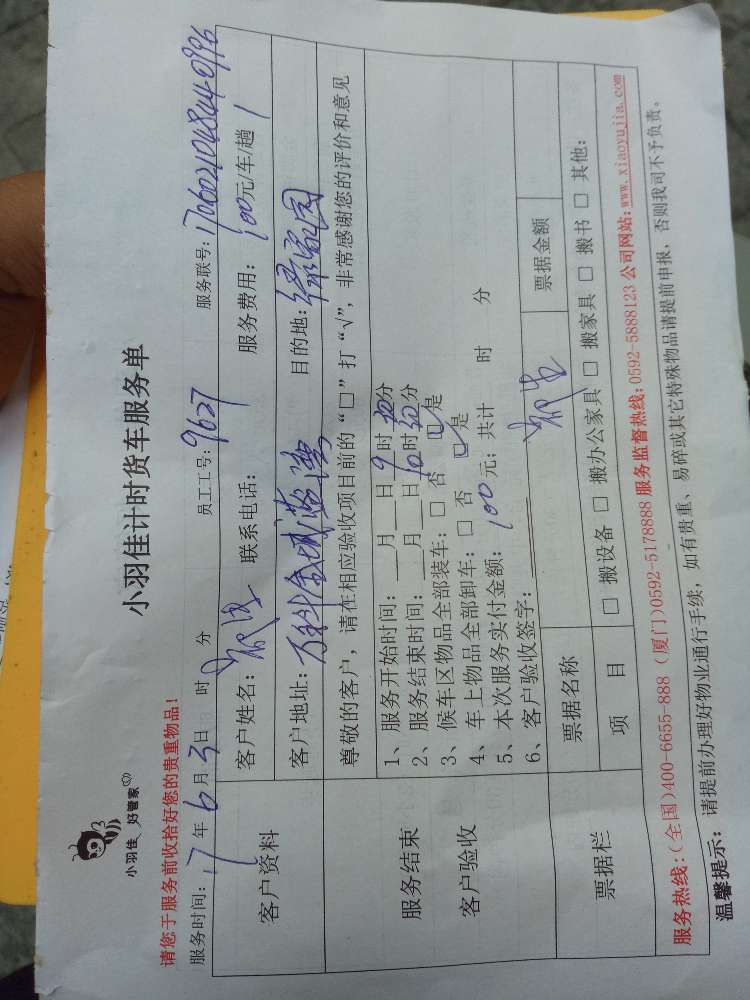 小羽佳 好管家
小羽佳计时货车服务单
请您于服务前收拾好您的贵重物品!
服务时间: 17 年 6 月 3 日 时 分 员工工号: 9627 服务联号: 1706021048440996
客户资料 客户姓名: 联系电话: 服务费用: 100元/车/趟 1
客户地址: 万科金域蓝湾 目的地: 绿家园
尊敬的客户，请在相应验收项目前的“□”打“√”，非常感谢您的评价和意见
服务结束
客户验收
1、服务开始时间: 月 日 9 时 20分
2、服务结束时间: 月 日 时 50分
3、候车区物品全部装车: □ 否 □ 是
4、车上物品全部卸车: □ 否 □ 是
5、本次服务实付金额: 100 元; 共计 时 分
6、客户验收签字:
票据栏 票据名称 票据金额
项 目 □ 搬设备 □ 搬办公家具 □ 搬家具 □ 搬书 □ 其他:
服务热线: (全国)400-6655-888 (厦门)0592-5178888 服务监督热线: 0592-5888123 公司网站: www.xiaoyujia.com
温馨提示: 请提前办理好物业通行手续，如有贵重、易碎或其它特殊物品请提前申报，否则我司不予负责。